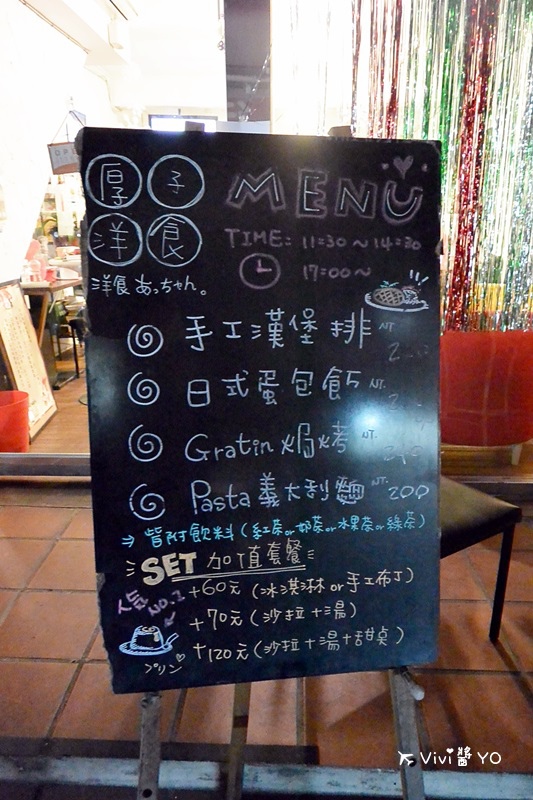 厚子
洋食
洋食あっちゃん。
MENU
TIME: 11:30～14:30
17:00～
手工漢堡排 NT.
日式蛋包飯 NT.
Gratin 焗烤 NT.
Pasta 義大利麵 NT. 200
⇒ 皆附飲料(紅茶or奶茶or水果茶or綠茶)
SET 加值套餐
人気 NO.1
+60元(冰淇淋 or 手工布丁)
+70元(沙拉+湯)
+120元(沙拉+湯+甜點)
プリン
Vivi醬YO